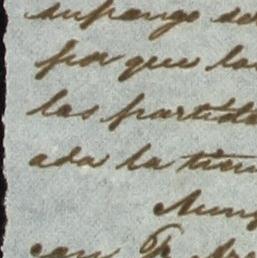 supongo se
por que la
las partid
ada la tien
Aunq
con